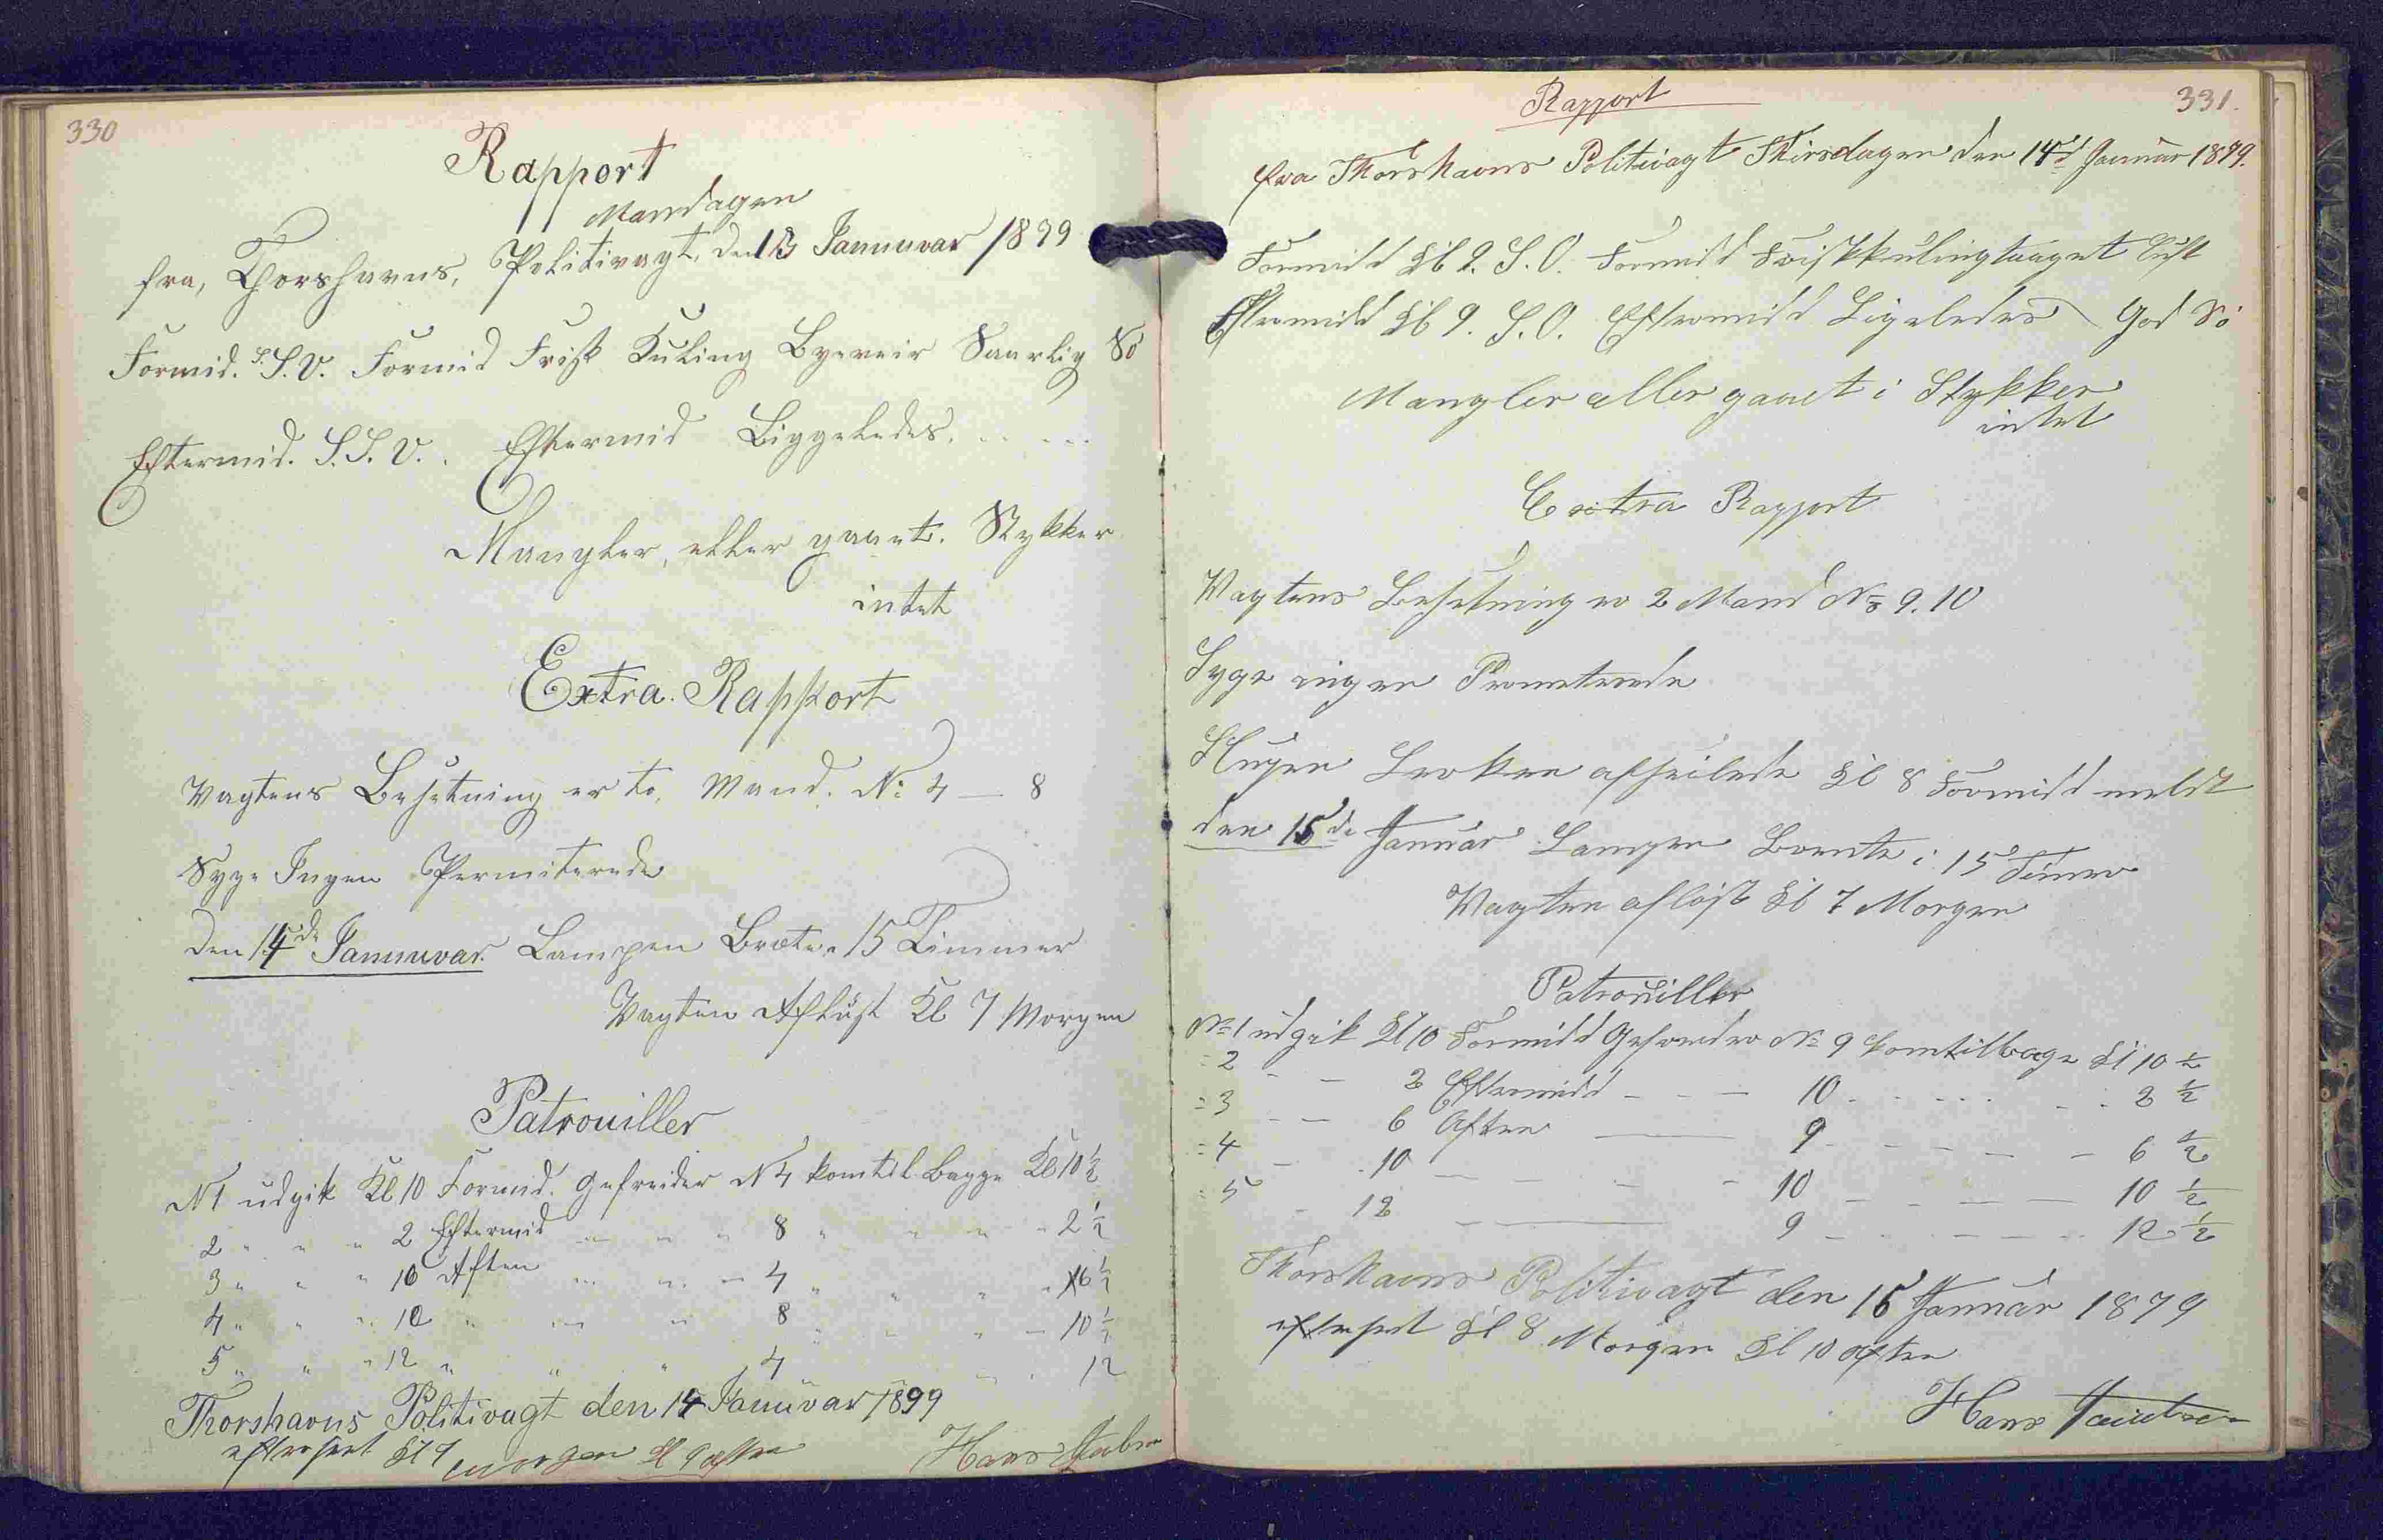 330
Rapport
Mandagen
fra, Thorshavns, Politivagt, den 13 Januuvar 1879
Formid. S.S.V. Formid Frisk Kuling Byeveir Saarlig Sö
Eftermid. S.S.V. Eftermid Liggeledes.
Mangler, eller gaaet i Stykker
intet
Extra. Rapport
Vagtens Besetning er to, Mand. No 4 — 8
Syge Ingen Permiterede
den 14de Januuvar. Lampen Brænte 15 Timmer
Vagten Aflöst Kl 7 Morgen
Patrouiller
N 1 udgik Kl 10 Formid. Gefreider N 4 kom til Bagge Kl 10 ½
2 " " " 2 Eftermid " " " 8 " " " " 2 ½
3 " " " 6 Aften " " " 4 " " " " 6 ½
4 " " " 10 " " " 8 " " " 10 ½
5 " " " 12 " " " 4 " " " 12
Thorshavns Politivagt den 14 Januuvar 1879
efterseet Kl 9 morgen Kl 9 aften Hans
331.
Rapport
fra Thorshavns Politivagt Thirsdagen den 14de Januar 1879.
Formidd Kl 9. S.O. Formidd Friskkulingtaaget Luft
Eftermidd Kl 9. S.O. Eftermidd Ligeledes God Sö
Mangler eller gaaet i Stykker
intet
Extra Rapport
Vagtens Besetning er 2 Mand No 9. 10
Syge ingen Permeterede
Slupen afseilede Kl 8 Formidd meldt
den 15de Januar Lampen Brente i 15 Timer
Vagten aflöst Kl 7 Morgen
Patrouiller
No 1 udgik Kl 10 Formidd Gefreider No 9 kom tilbage Kl 10 ½
= 2 - - 2 Eftermidd - - - 10 - - - - 2 ½
= 3 - - 6 Aften — 9 - - - - 6 ½
= 4 - - 10 - - - - 10 - - - 10 ½
= 5 - 12 - — 9 - - - - 12 ½
Thorshavns Politivagt den 15 Januar 1879
efterseet Kl 8 Morgen Kl 10 Aften
Hans